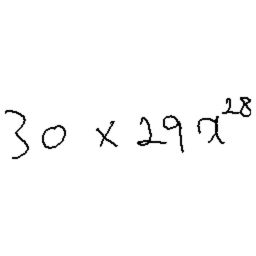 30 × 29x^28